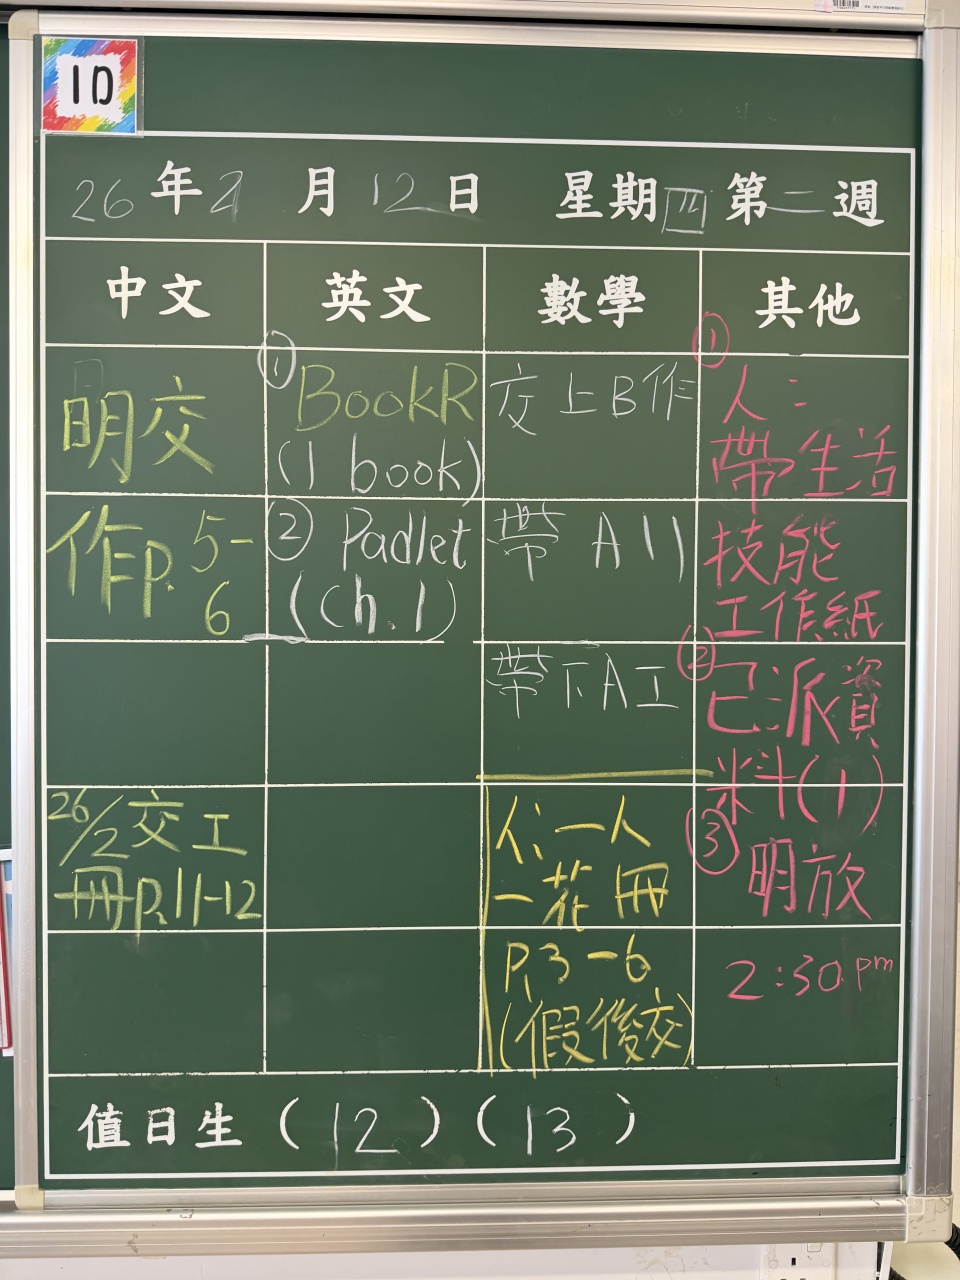 1D
26年2月12日 星期四 第二週
中文 英文 數學 其他
明交
作p.5-
6
26/2交工
冊p.11-12
① BookR
(1 book)
② Padlet
(Ch.1)
交上B作
帶 A11
帶下A工
人:一人
一花冊
P.3-6
(假後交)
① 人:
帶生活
技能
工作紙
② 已派資
料(1)
③ 明放
2:30pm
值日生(12)(13)